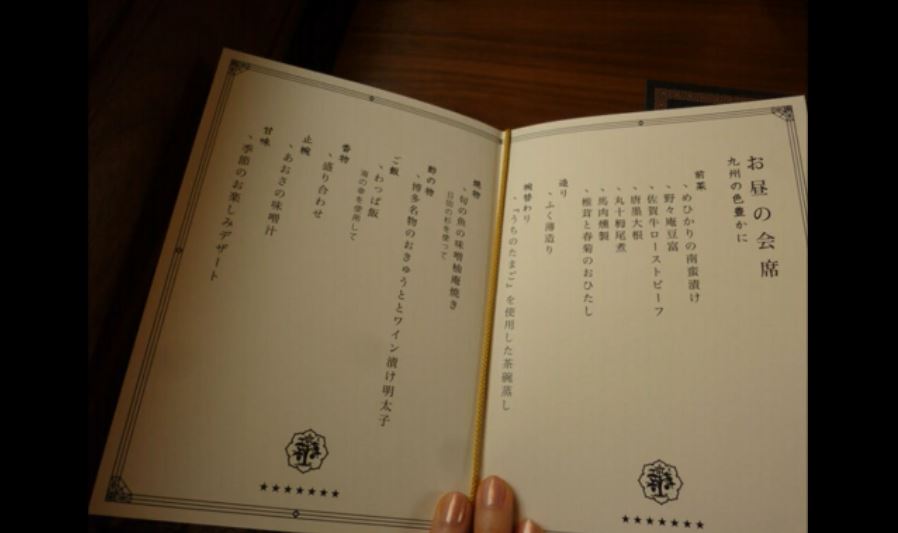 お昼の会席
九州の色豊かに
前菜
、めひかりの南蛮漬け
、野々庵豆富
、佐賀牛ローストビーフ
、唐墨大根
、丸十梔尾煮
、馬肉燻製
、椎茸と春菊のおひたし
造り
、ふく薄造り
椀替わり
、『うちのたまご』を使用した茶碗蒸し
焼物
、旬の魚の味噌柚庵焼き
日田の杉を使って
酢の物
、博多名物のおきゅうととワイン漬け明太子
ご飯
、わっぱ飯
海の幸を使用して
香物
、盛り合わせ
止椀
、あおさの味噌汁
甘味
、季節のお楽しみデザート